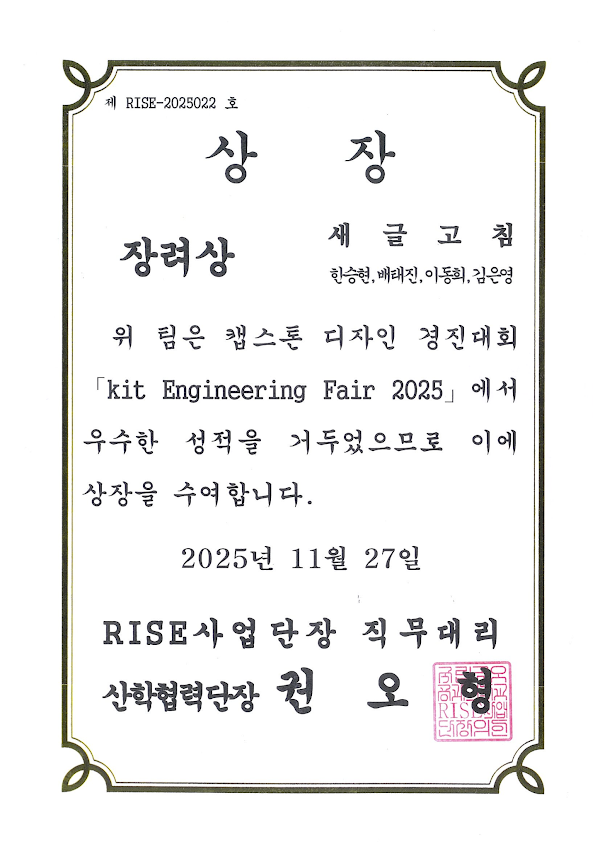 제 RISE-2025022 호
상 장
장려상
새 글 고 침
한승현,배태진,이동희,김은영
위 팀은 캡스톤 디자인 경진대회
「kit Engineering Fair 2025」에서
우수한 성적을 거두었으므로 이에
상장을 수여합니다.
2025년 11월 27일
RISE사업단장 직무대리
산학협력단장 권 오 형
RISE